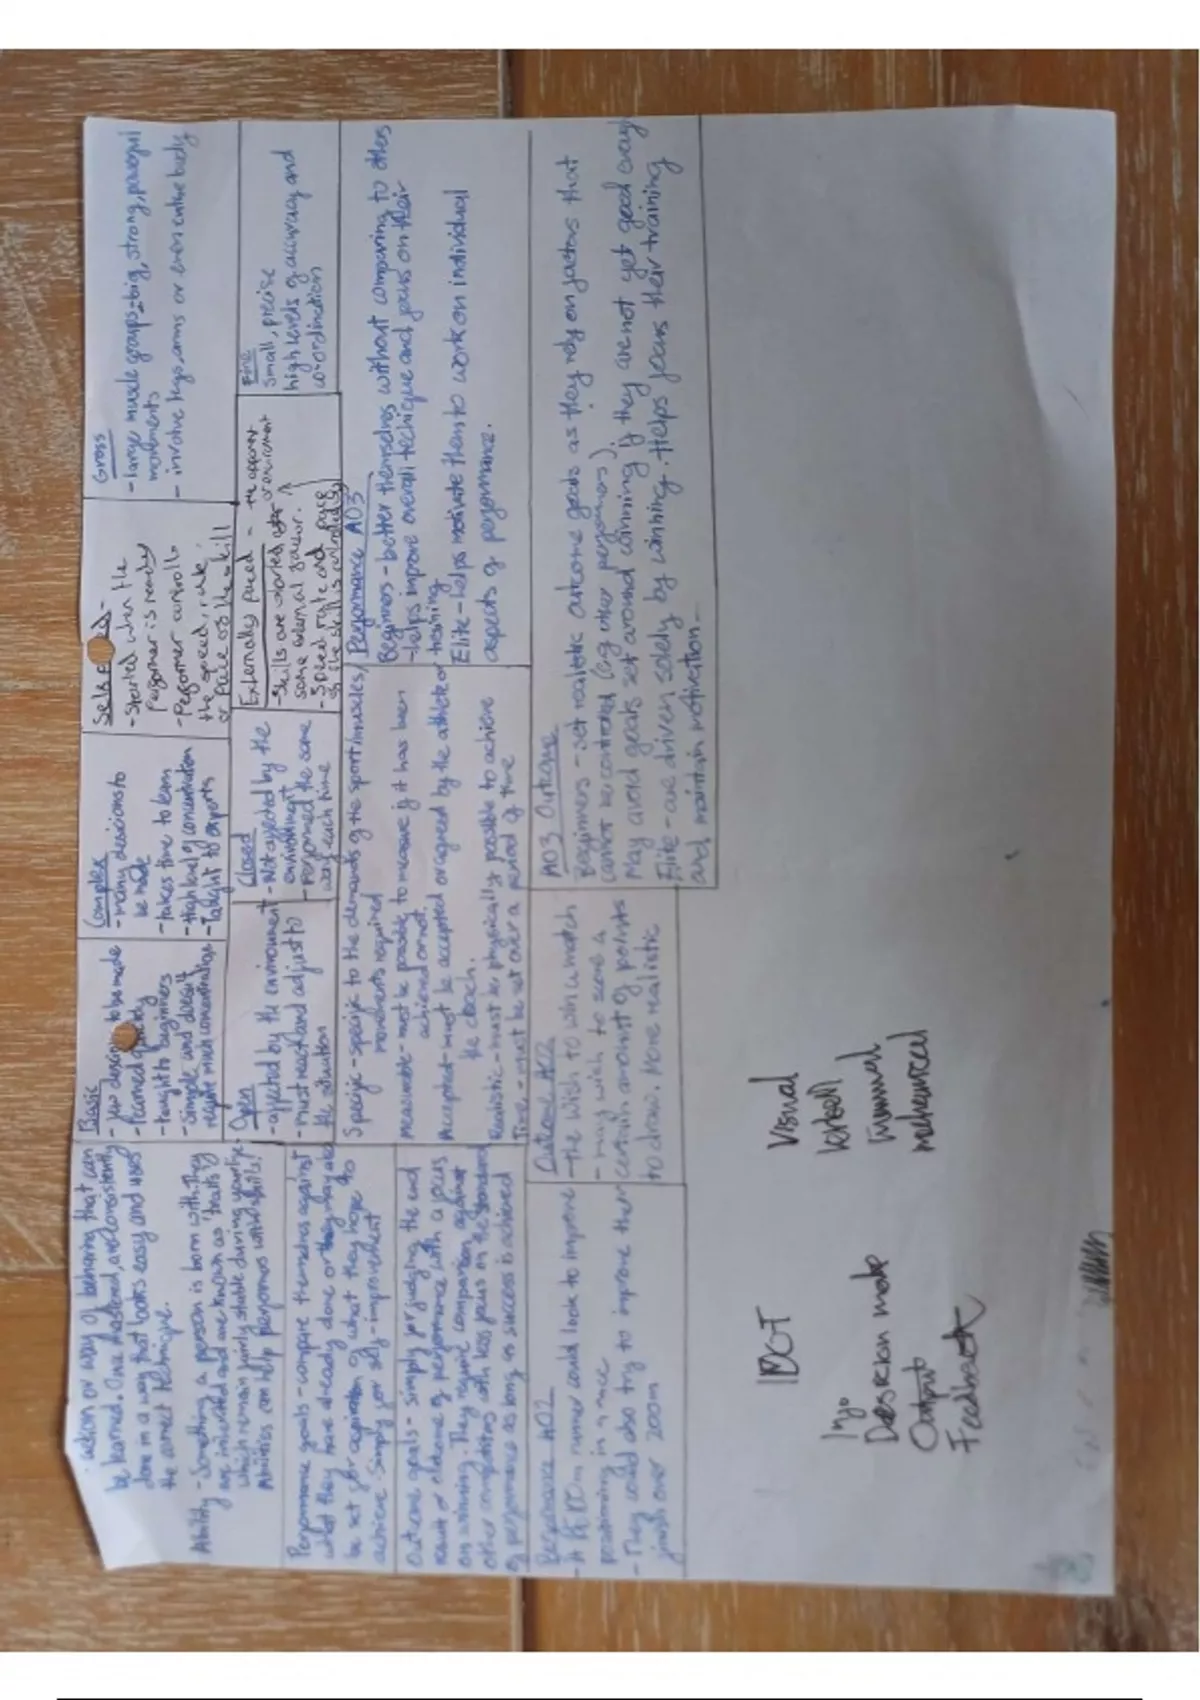 action or way of behaving that can
be learned. Once mastered, are consistently
done in a way that looks easy and uses
the correct technique.
Ability - Something a person is born with. They
are inherited and are known as 'traits'
which remain fairly stable during your life.
Abilities can help performers with skills.
Basic
- few decisions to be made
- learned quickly
- taught to beginners
- simple and doesn't
require much concentration
Complex
- many descisions to
be made
- takes time to learn
- High level of concentration
- Taught to experts
Self
- Started when the
performer is ready
- Performer controlls
the speed, rate,
or pace of the skill
Gross
- large muscle groups = big, strong, powerful
movements
- involve legs, arms or even entire body
Open
- affected by the environment
- must react and adjust to
the situation
Closed
- Not affected by the
environment
- Performed the same
way each time
Externally paced - the opponent
- Skills are started, after or environment
some external factor.
- Speed rate and pace
of the skill is
Fine
small, precise
high levels of accuracy and
co-ordination
Performance goals - compare themselves against
what they have already done or they may also
be set for aspiration of what they hope to
achieve simply for self-improvement
Outcome goals - simply for judging the end
result or outcome of performance with a focus
on winning. They require comparison against
other competitors with less focus on the standard
of performance as long as success is achieved
Specific - specific to the demands of the sport/muscles/
movements required
Measurable - must be possible to measure if it has been
achieved or not.
Accepted - must be accepted or agreed by the athlete or
the coach.
Realistic - must be physically possible to achieve
Time - must be set over a period of time
Performance AO3
Beginners - better themselves without comparing to others
- helps improve overall techique and focus on their
training
Elite - helps motivate them to work on individual
aspects of performance.
Performance AO2
- A runner could look to improve
positioning in a race
- They could also try to improve their
finish over 200m
Outcome AO2
- The wish to win a match
- may wish to score a
certain amount of points
to draw. More realistic
AO3 Outcome
Beginners - set realistic outcome goals as they rely on factors that
cannot be controlled (eg other performers)
May avoid goals set around winning if they are not yet good enough
Elite - are driven solely by winning. Helps focus their training
and maintain motivation -
IDOT
Info
Descision make
Output
Feedback
Visual
Verbal
manual
mechanical